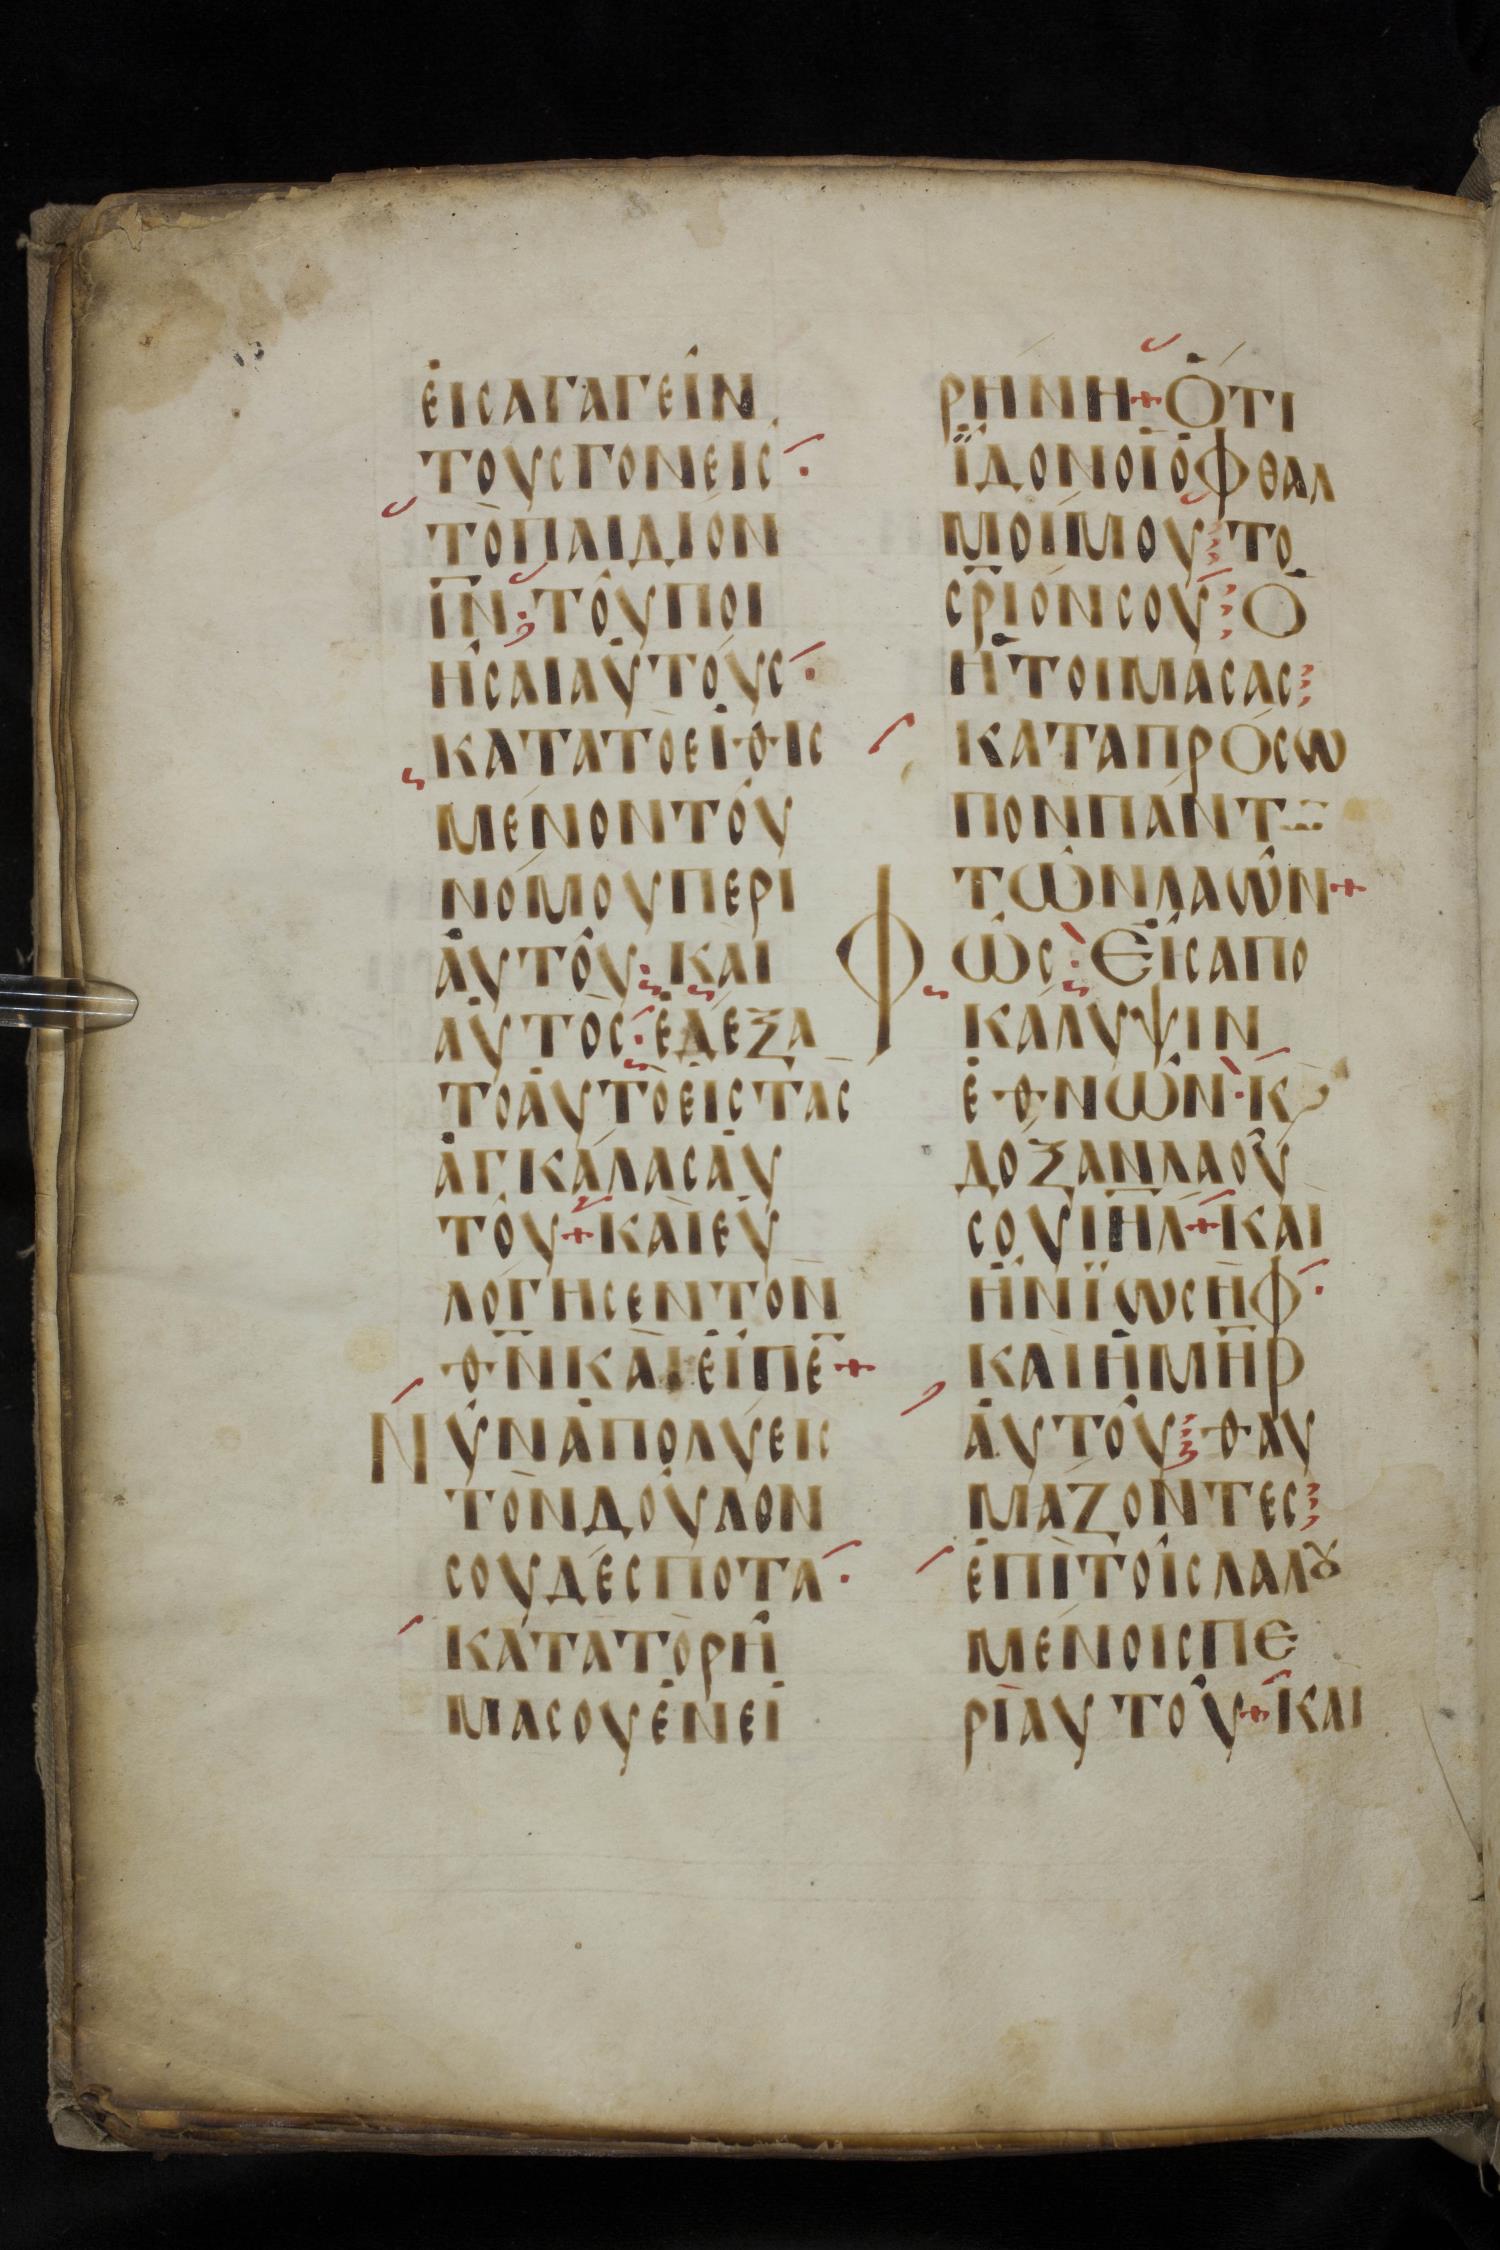 ἐισαγαγεῖν
τους γονεις
τὸ παιδίον
ῑν̄ · τοῦ ποι
ῆσαι αὐτοὺς ·
κατα το ειθισ
μένον τοῦ
νόμου περι
ἀυτοῦ · και
αὐτος · ἐδεξα
το ἀυτὸ ἐις τὰς
ἀγκάλας αὐ
τοῦ + και ευ
λόγησεν τον
θ̄ν̄ και εἰπε̄ +
Νῦν ἀπολύεις
τὸν δοῦλον
σου δέσποτα ·
κατα τὸ ρῆ
μα σου ἐν ει
ρήνη + Ὅτι
ϊδον οἱ ὀφθαλ
μοί μου ⁝ το
σ̄ρ̄ιόν σου ⁝ Ὁ
ἡτοίμασας ⁝
κατα πρόσω
πον πάντω̄
τῶν λαῶν +
Φῶς · Εἰς απο
κάλυψιν
ἐθνῶν · κ
δόξαν λαοῦ
σου ῑη̄λ̄ + Και
ἦν ϊωσὴφ ·
και ἡ μ̄η̄ρ̄
ἀυτοῦ ⁝ θαυ
μάζοντες ⁝
ἐπὶ τοῖς λαλȣ
μένοις πε
ρὶ αυτοῦ + Και